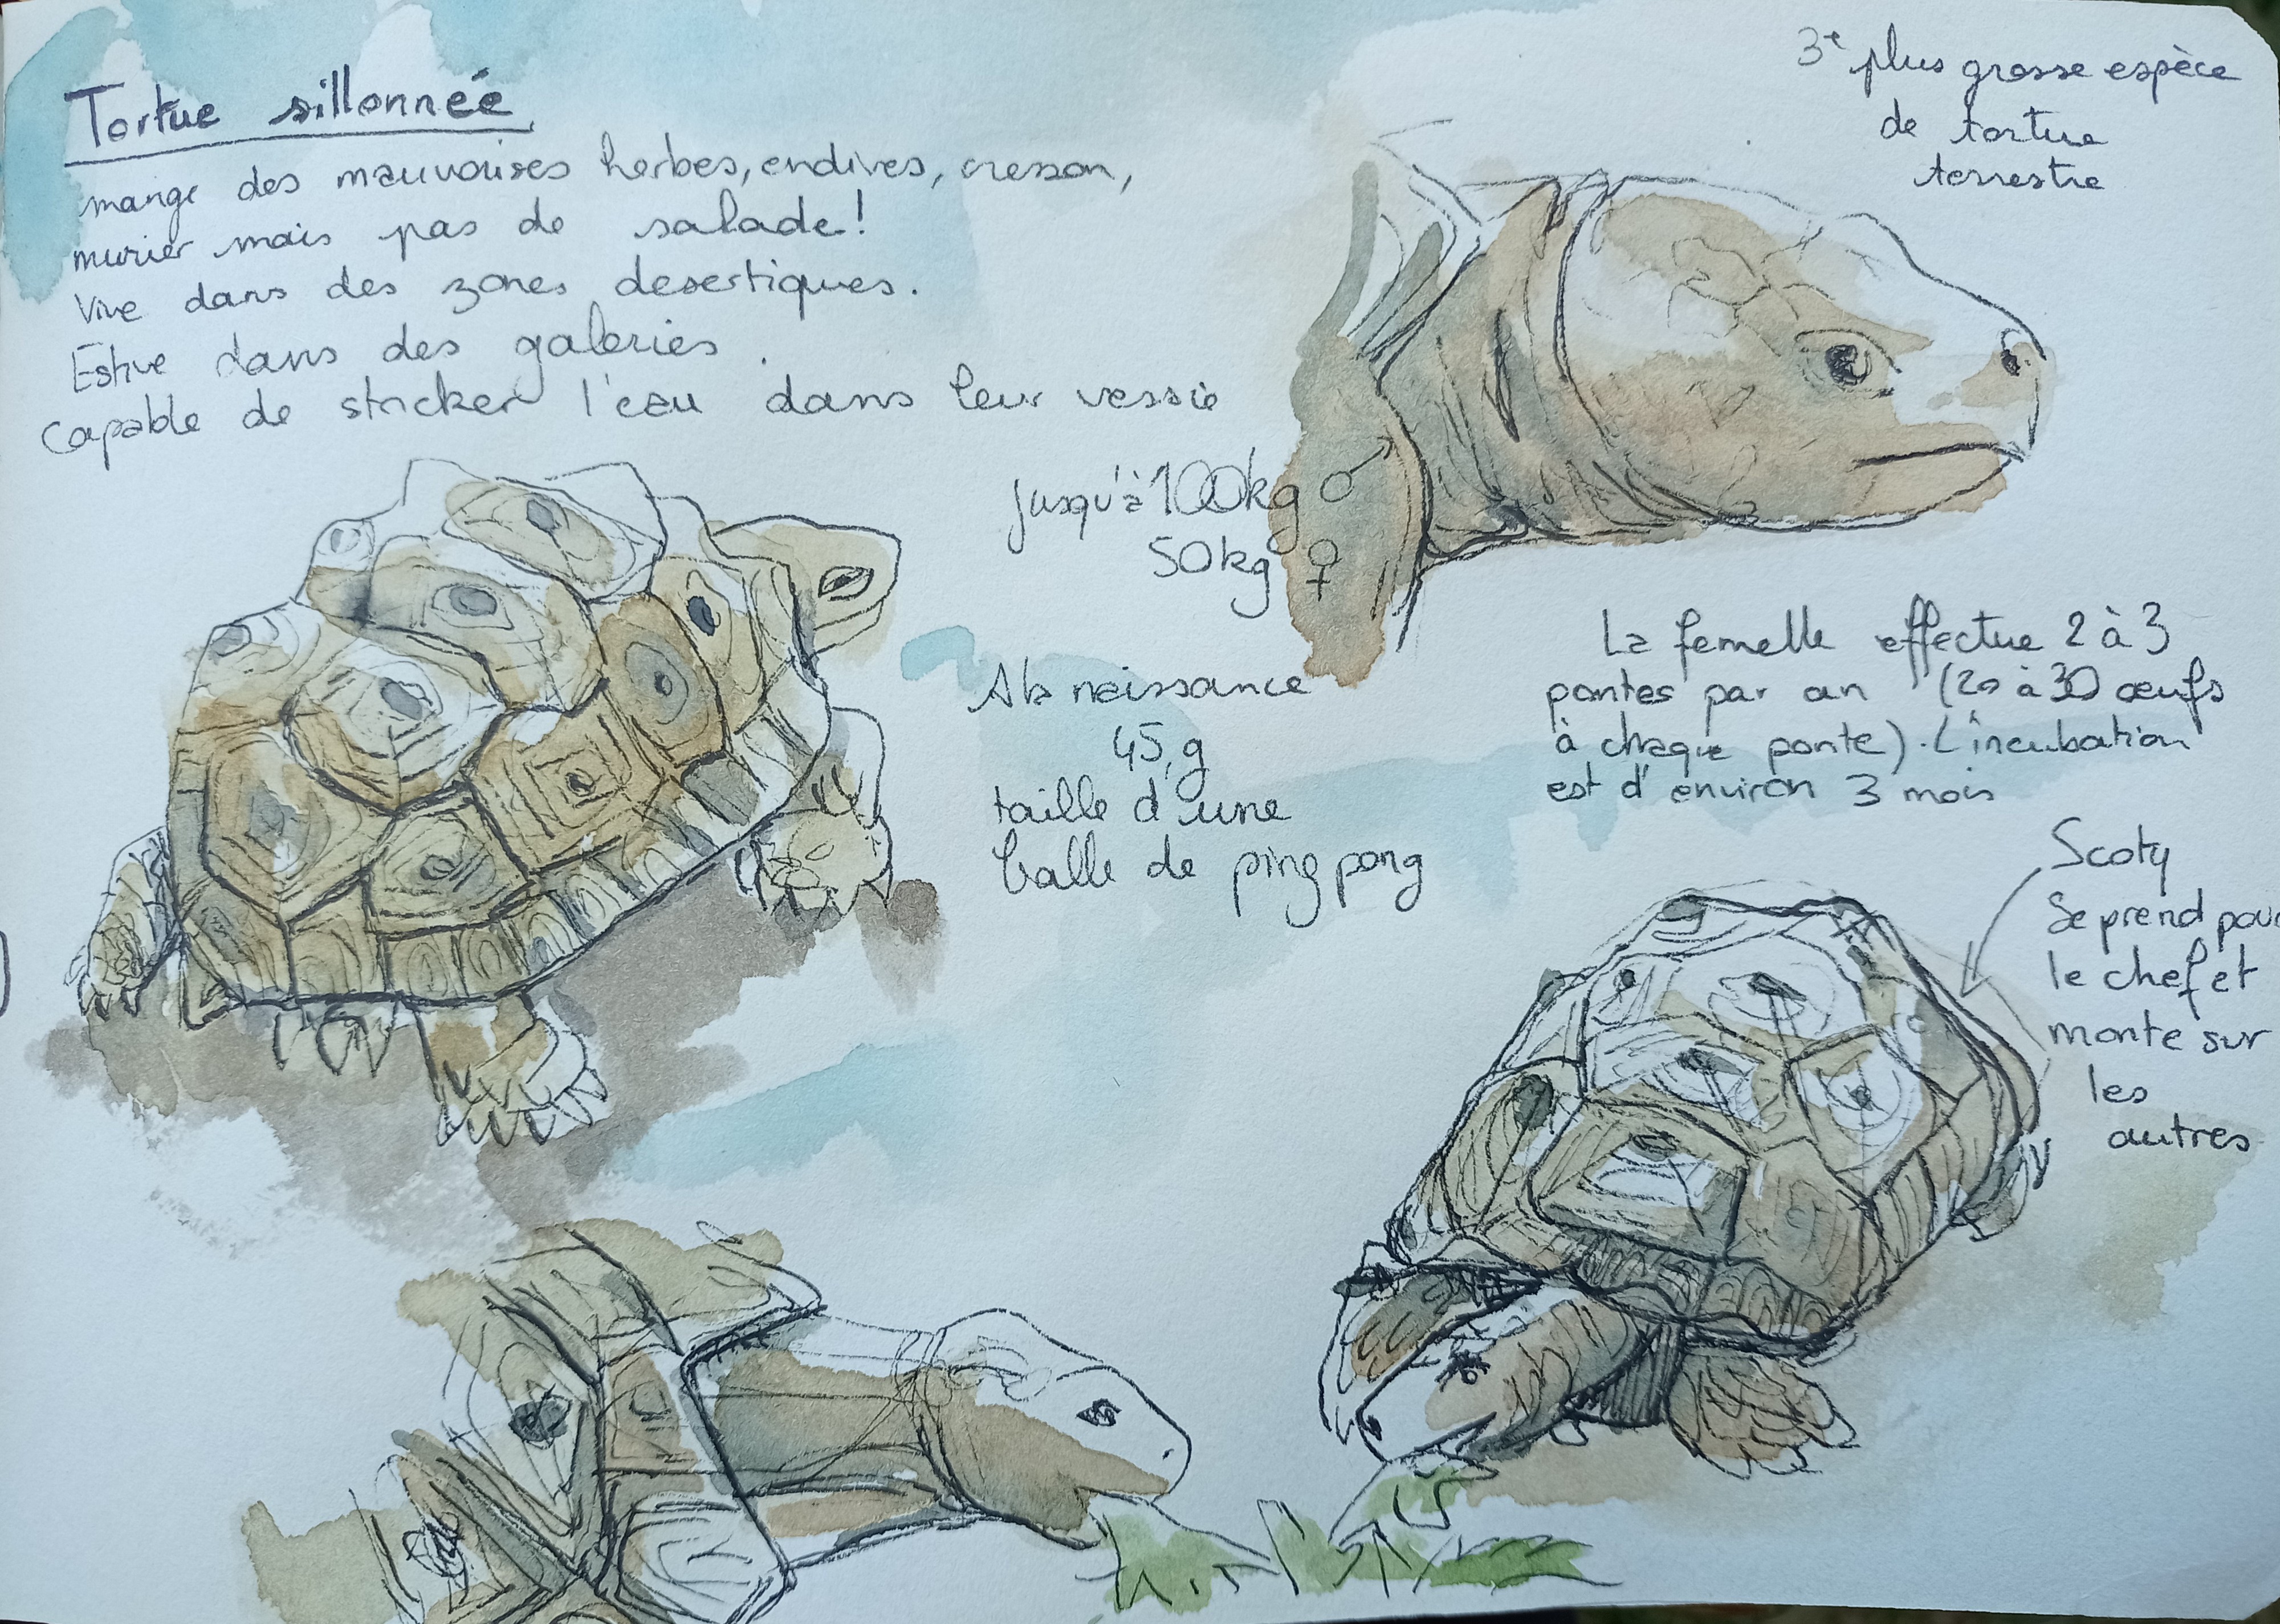 Tortue sillonnée
mange des mauvaises herbes, endives, cresson,
murier mais pas de salade!
Vive dans des zones desertiques.
Estive dans des galeries.
Capable de stocker l'eau dans leur vessie
3e plus grosse espèce
de tortue
terrestre
jusqu'à 100kg ♂
50kg ♀
A la naissance
45 g
taille d'une
balle de ping pong
La femelle effectue 2 à 3
pontes par an (20 à 30 œufs
à chaque ponte). L'incubation
est d'environ 3 mois
Scoty
Se prend pour
le chef et
monte sur
les
autres